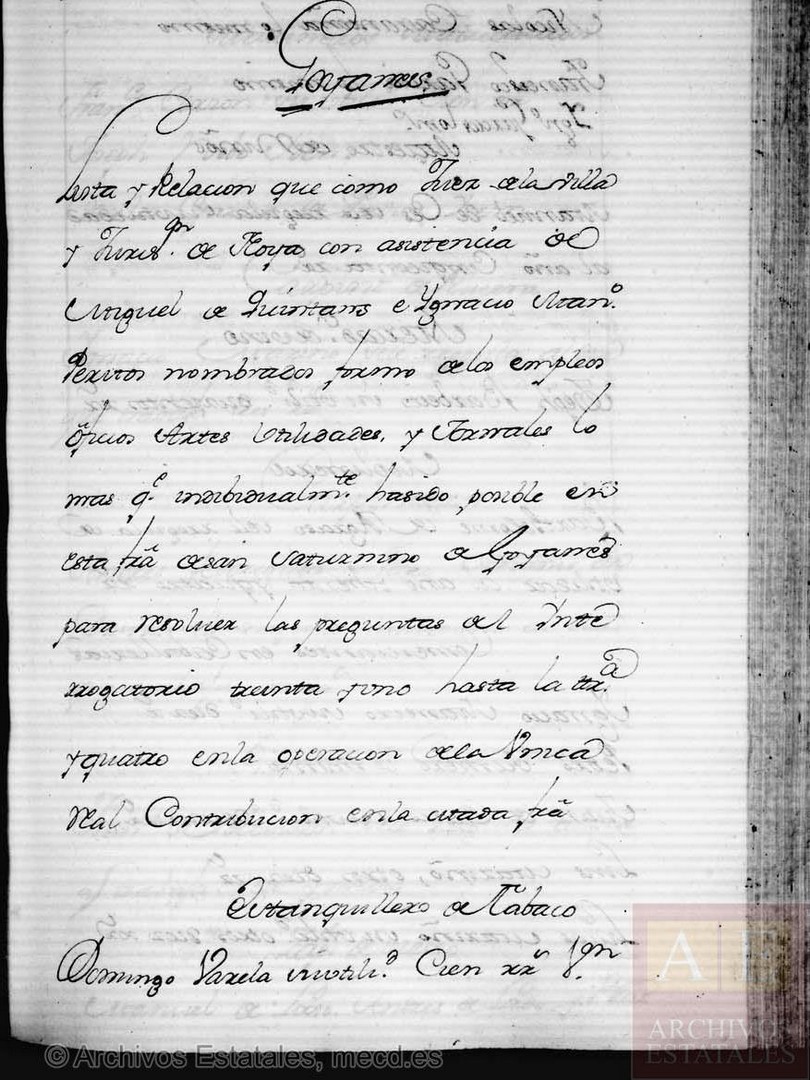 Goyanes
Lista y Relacion que como Juez de la villa
y Jurisn. de Noya con asistencia de
Miguel de Quintans e Ygnacio Mano.
Peritos nombrados, formo de los empleos
oficios Artes Utilidades, y Jornales lo
mas qe. indibidualmte. hasido posible en
esta fra. de san Saturnino de Goyanes
para resolver las preguntas del Inte
rrogatorio treinta y uno hasta la tra.
y quatro enla operacion dela Unica
Real Contribucion enla citada fra.
Estanquillero de Tabaco
Domingo Varela suutilid. Cien rrs. Vn.
© Archivos Estatales, mecd.es
AE
ARCHIVO
ESTATALES